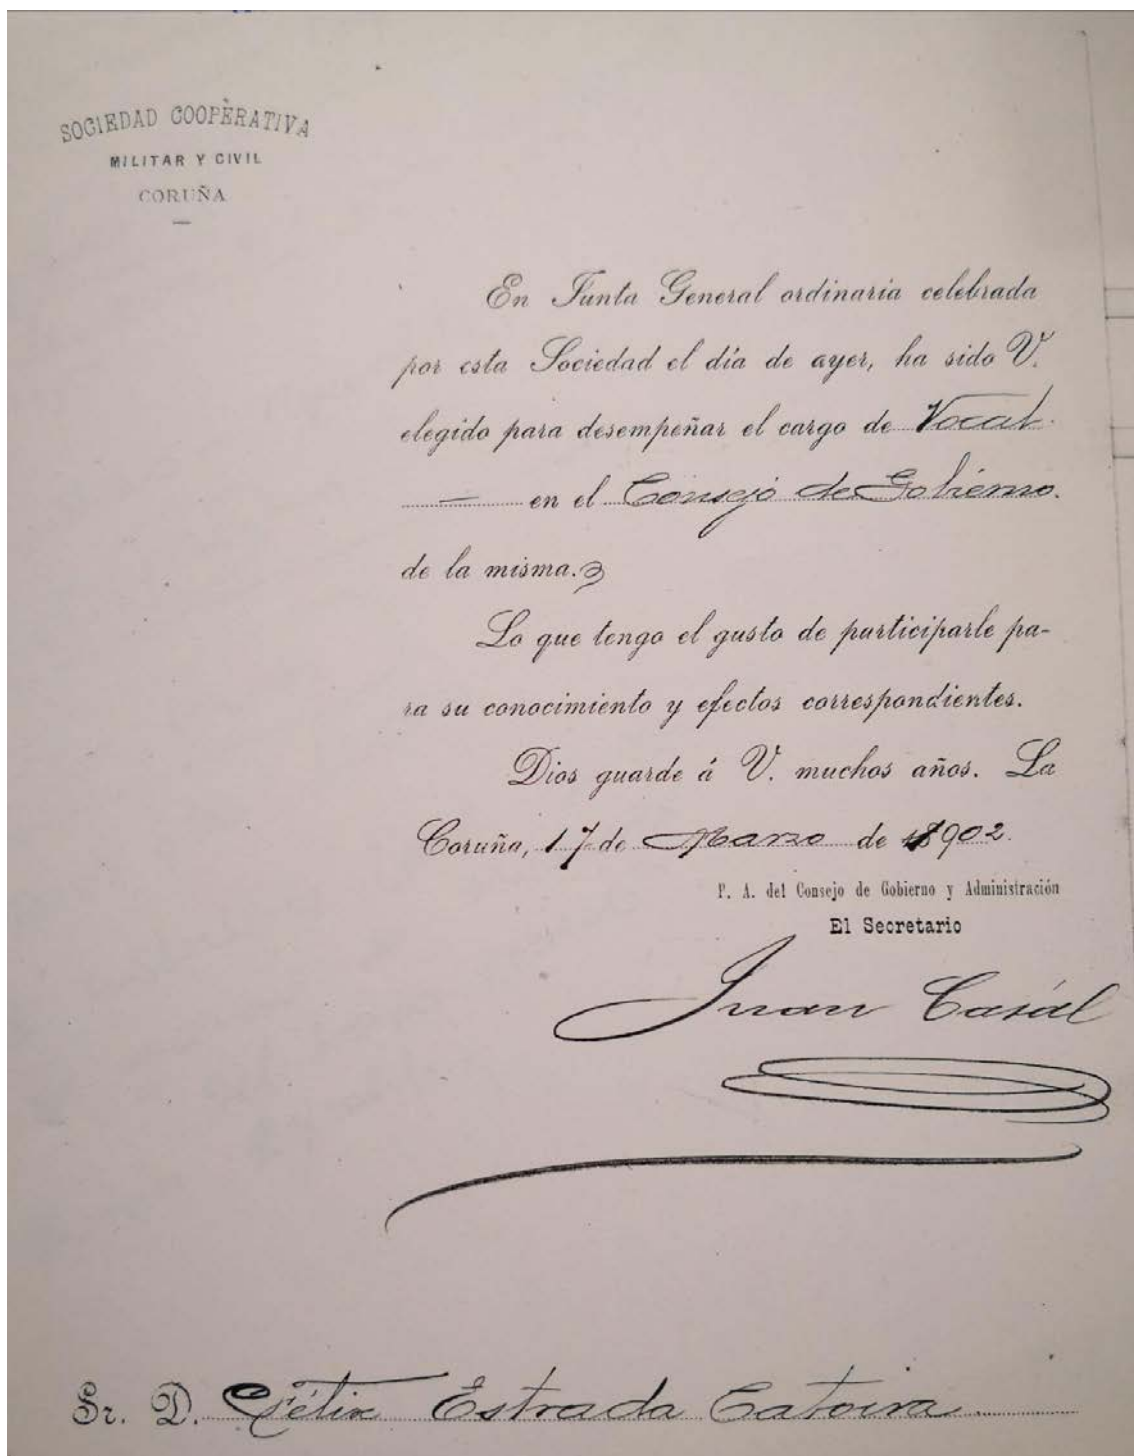 SOCIEDAD COOPERATIVA
MILITAR Y CIVIL
CORUÑA
En Junta General ordinaria celebrada
por esta Sociedad el día de ayer, ha sido V.
elegido para desempeñar el cargo de Vocal.
en el Consejo de Gobierno.
de la misma.
Lo que tengo el gusto de participarle pa-
ra su conocimiento y efectos correspondientes.
Dios guarde á V. muchos años. La
Coruña, 17 de Marzo de 1902.
P. A. del Consejo de Gobierno y Administración
El Secretario
Juan Casál
Sr. D. Félix Estrada Catoira